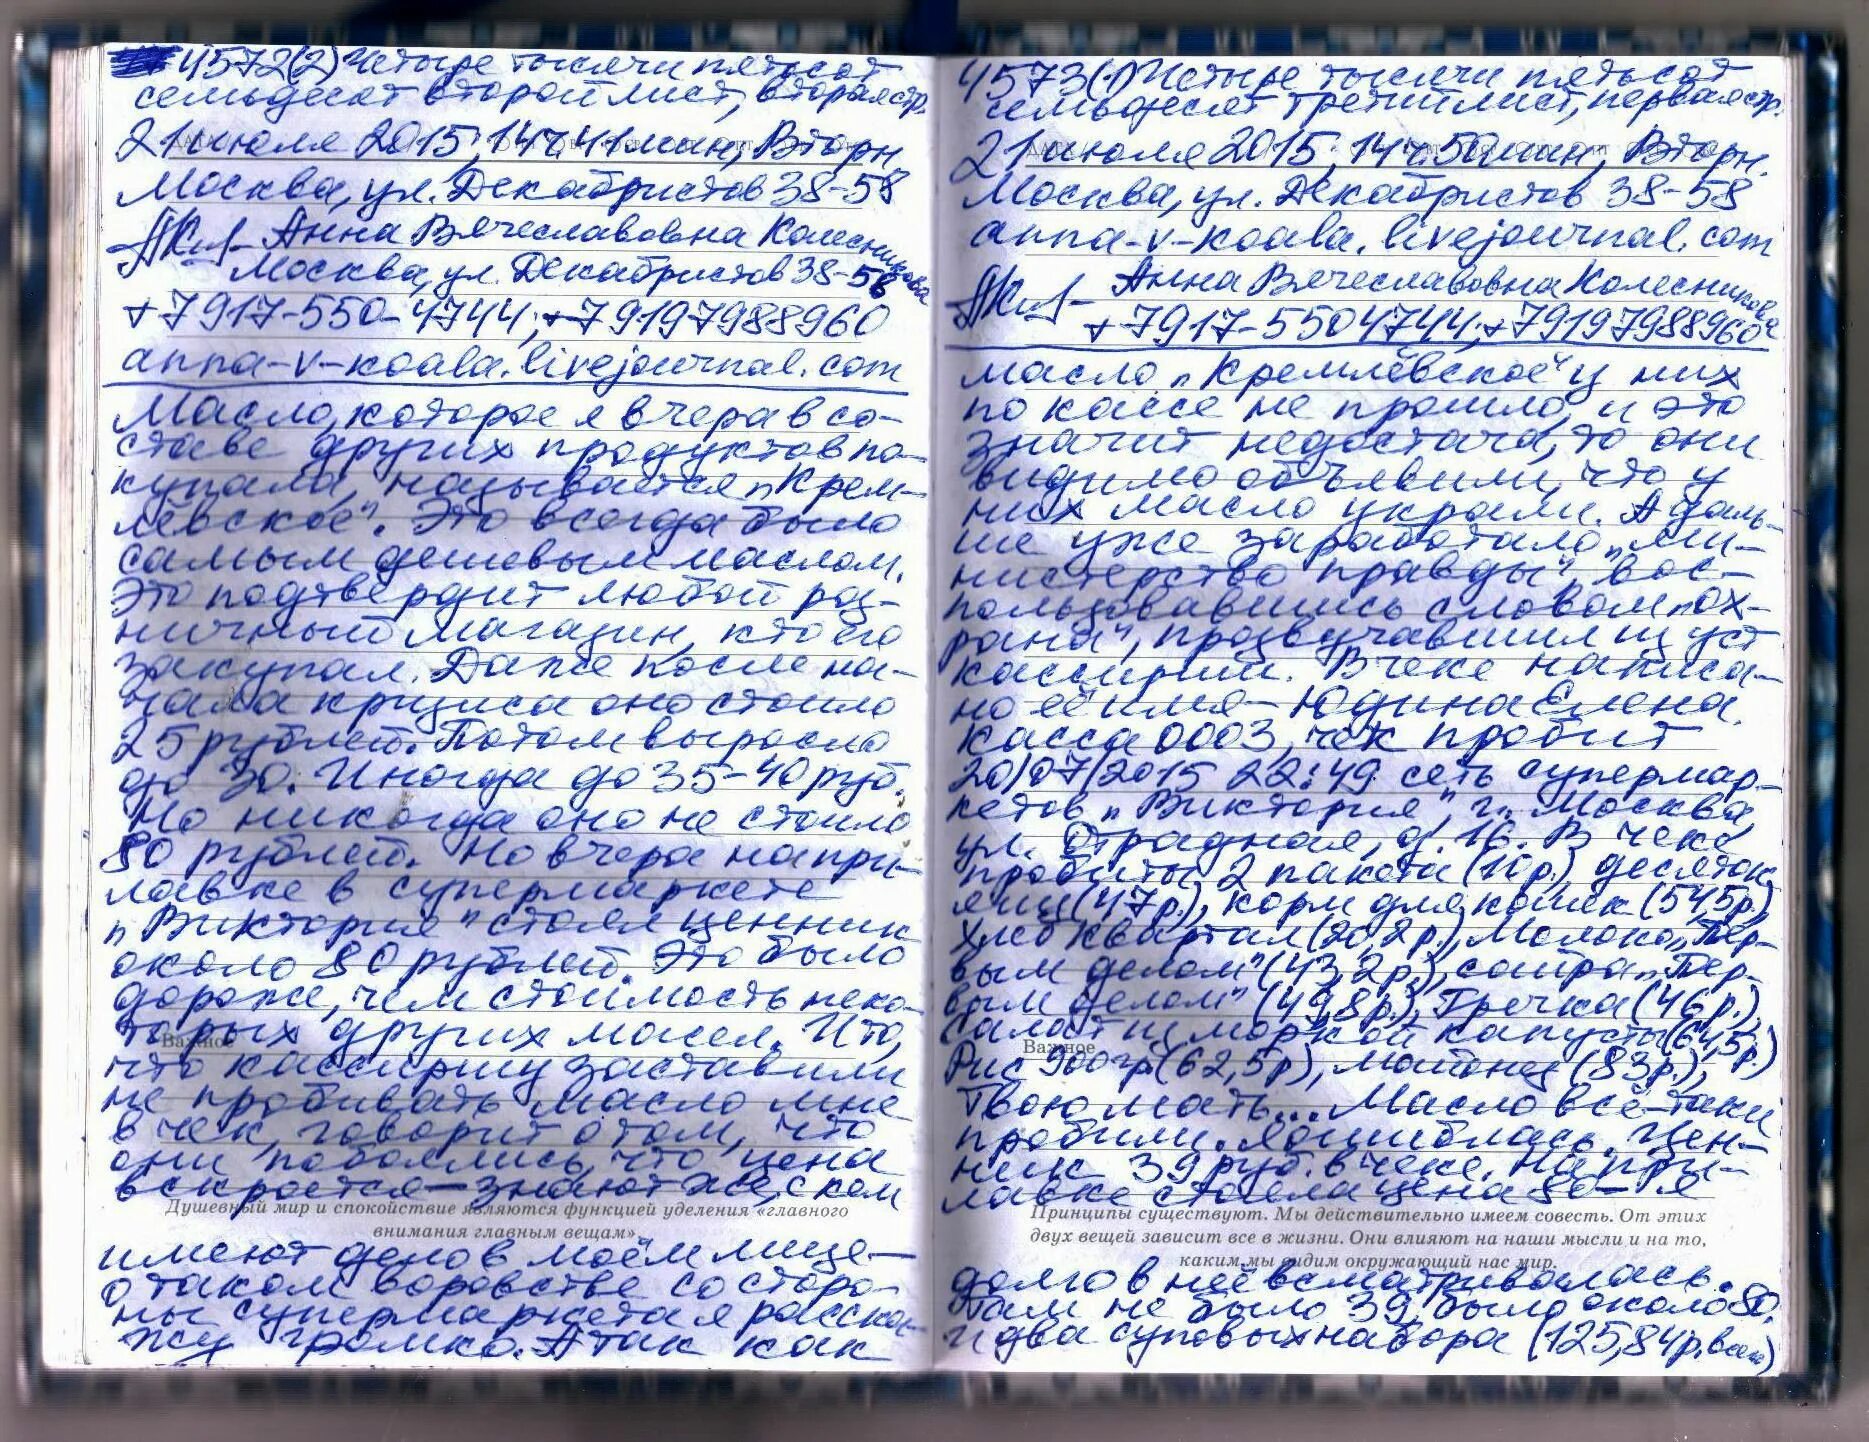 4572(2) Четыре тысячи пятьсот
семьдесят второй лист, вторая стр.
21 июля 2015, 14ч 41 мин, Вторн.
Москва, ул. Декабристов 38-58
Анна Вячеславовна Колесникова
Москва, ул. Декабристов 38-58
+7917-550-4744; +79197988960
anna-v-koala.livejournal.com
Масло, которое я вчера в со-
ставе других продуктов по-
купала, называется „Крем-
лёвское". Это всегда было
самым дешевым маслом.
Это подтвердит любой роз-
ничный магазин, кто его
закупал. Даже после на-
чала кризиса оно стоило
25 рублей. Потом выросло
до 30. Иногда до 35-40 руб.
Но никогда оно не стоило
80 рублей. Но вчера на при-
лавке в супермаркете
„Виктория" стоял ценник
около 80 рублей. Это было
дороже, чем стоимость неко-
торых других масел. И то,
Важное
что кассиршу заставили
не пробивать масло мне
в чек, говорит о том, что
они побоялись, что цена
вскроется – знают же, с кем
Душевный мир и спокойствие являются функцией уделения «главного
внимания главным вещам».
имеют дело в моём лице –
о таком воровстве со сторо-
ны супермаркета я расска-
жу громко. А так как
4573(1) Четыре тысячи пятьсот
семьдесят третий лист, первая стр.
21 июля 2015, 14ч 50 мин, Вторн.
Москва, ул. Декабристов 38-58
anna-v-koala.livejournal.com
Анна Вячеславовна Колесникова
+7917-5504744; +79197988960
масло „Кремлёвское" у них
по кассе не прошло, и это
значит недостача, то они
видимо объявили, что у
них масло украли. А даль-
ше уже заработало „ми-
нистерство правды", вос-
пользовавшись словом „ох-
рана", прозвучавшим из уст
кассирши. В чеке написа-
но её имя – Юдина Елена.
Касса 0003, чек пробит
20/07/2015 22:49 сеть супермар-
кетов „Виктория", г. Москва,
ул. Отрадная, д. 16. В чеке
пробиты 2 пакета (10р.), десяток
яиц (47р.), корм для кошек (545р.)
хлеб квартал (20,2р.), Молоко „Пер-
вым делом" (43,2р.), сайра „Пер-
вым делом" (49,8р.), Гречка (46р.),
салат из морской капусты (64,5р.)
Важное
Рис 900гр (62,5р), майонез (83р.),
Твою мать... Масло всё-таки
пробили. Я ошиблась. Цен-
ник 39 руб. в чеке. На при-
лавке стояла цена 80 – я
Принципы существуют. Мы действительно имеем совесть. От этих
двух вещей зависит все в жизни. Они влияют на наши мысли и на то,
каким мы видим окружающий нас мир.
долго в неё всматривалась.
Там не было 39, было около 80.
И два суповых набора (125,84р.